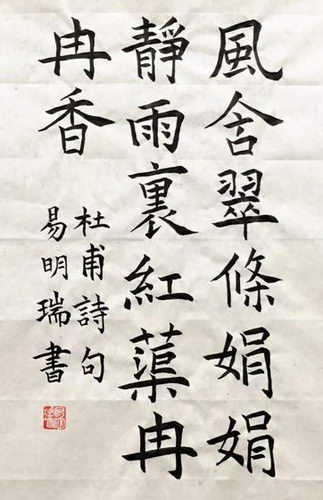 風含翠條娟娟
靜雨裏紅蕖冉
冉香
杜甫詩句
易明瑞書